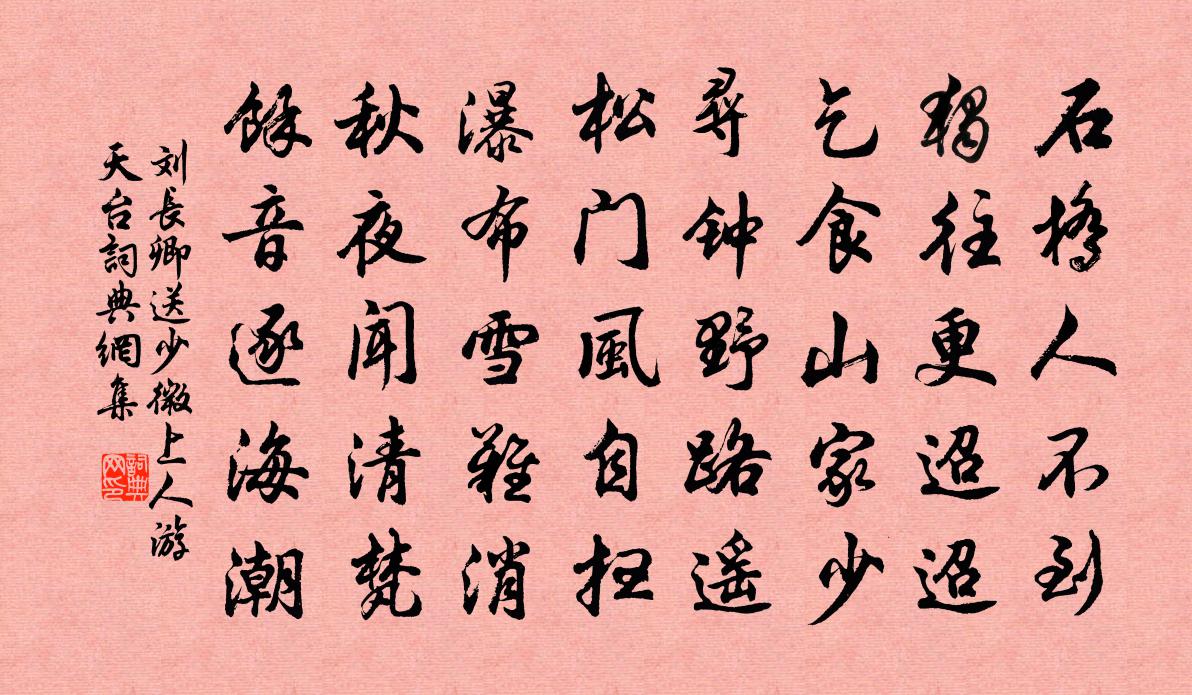 石橋人不到
獨往更迢迢
乞食山家少
尋钟野路遥
松门風自扫
瀑布雪難消
秋夜闻清梵
餘音逐海潮
刘長卿送少微上人游
天台詞典網集
詞典网印